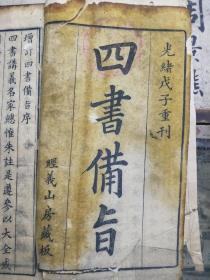 光緒戊子重刊
四書備旨
經義山房藏板
增訂四書備旨序
四書講義名家總惟朱註是遵參以大全或